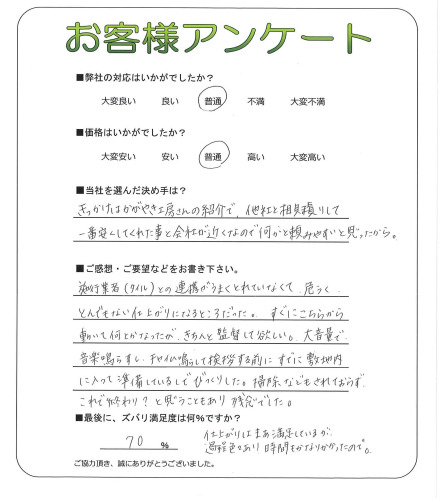 お客様アンケート
■弊社の対応はいかがでしたか？
大変良い 良い 普通 不満 大変不満
■価格はいかがでしたか？
大変安い 安い 普通 高い 大変高い
■当社を選んだ決め手は？
きっかけはかがやき工房さんの紹介で、他社と相見積りして
一番安くしてくれた事と会社が近くなので何かと頼みやすいと思ったから。
■ご感想・ご要望などをお書き下さい。
施行業者(タイル)との連携がうまくとれていなくて、危うく、
とんでもない仕上がりになるところだった。すぐにこちらから
動いて何とかなったが、きちんと監督して欲しい。大音量で
音楽鳴らすし、チャイム鳴らして挨拶する前にすでに敷地内
に入って準備しているしでびっくりした。掃除などもされておらず、
これで終わり？と思うこともあり残念でした。
■最後に、ズバリ満足度は何%ですか？
70 %
仕上がりはまあ満足しているが、
過程色々あり時間もかなりかかったので。
ご協力頂き、誠にありがとうございました。